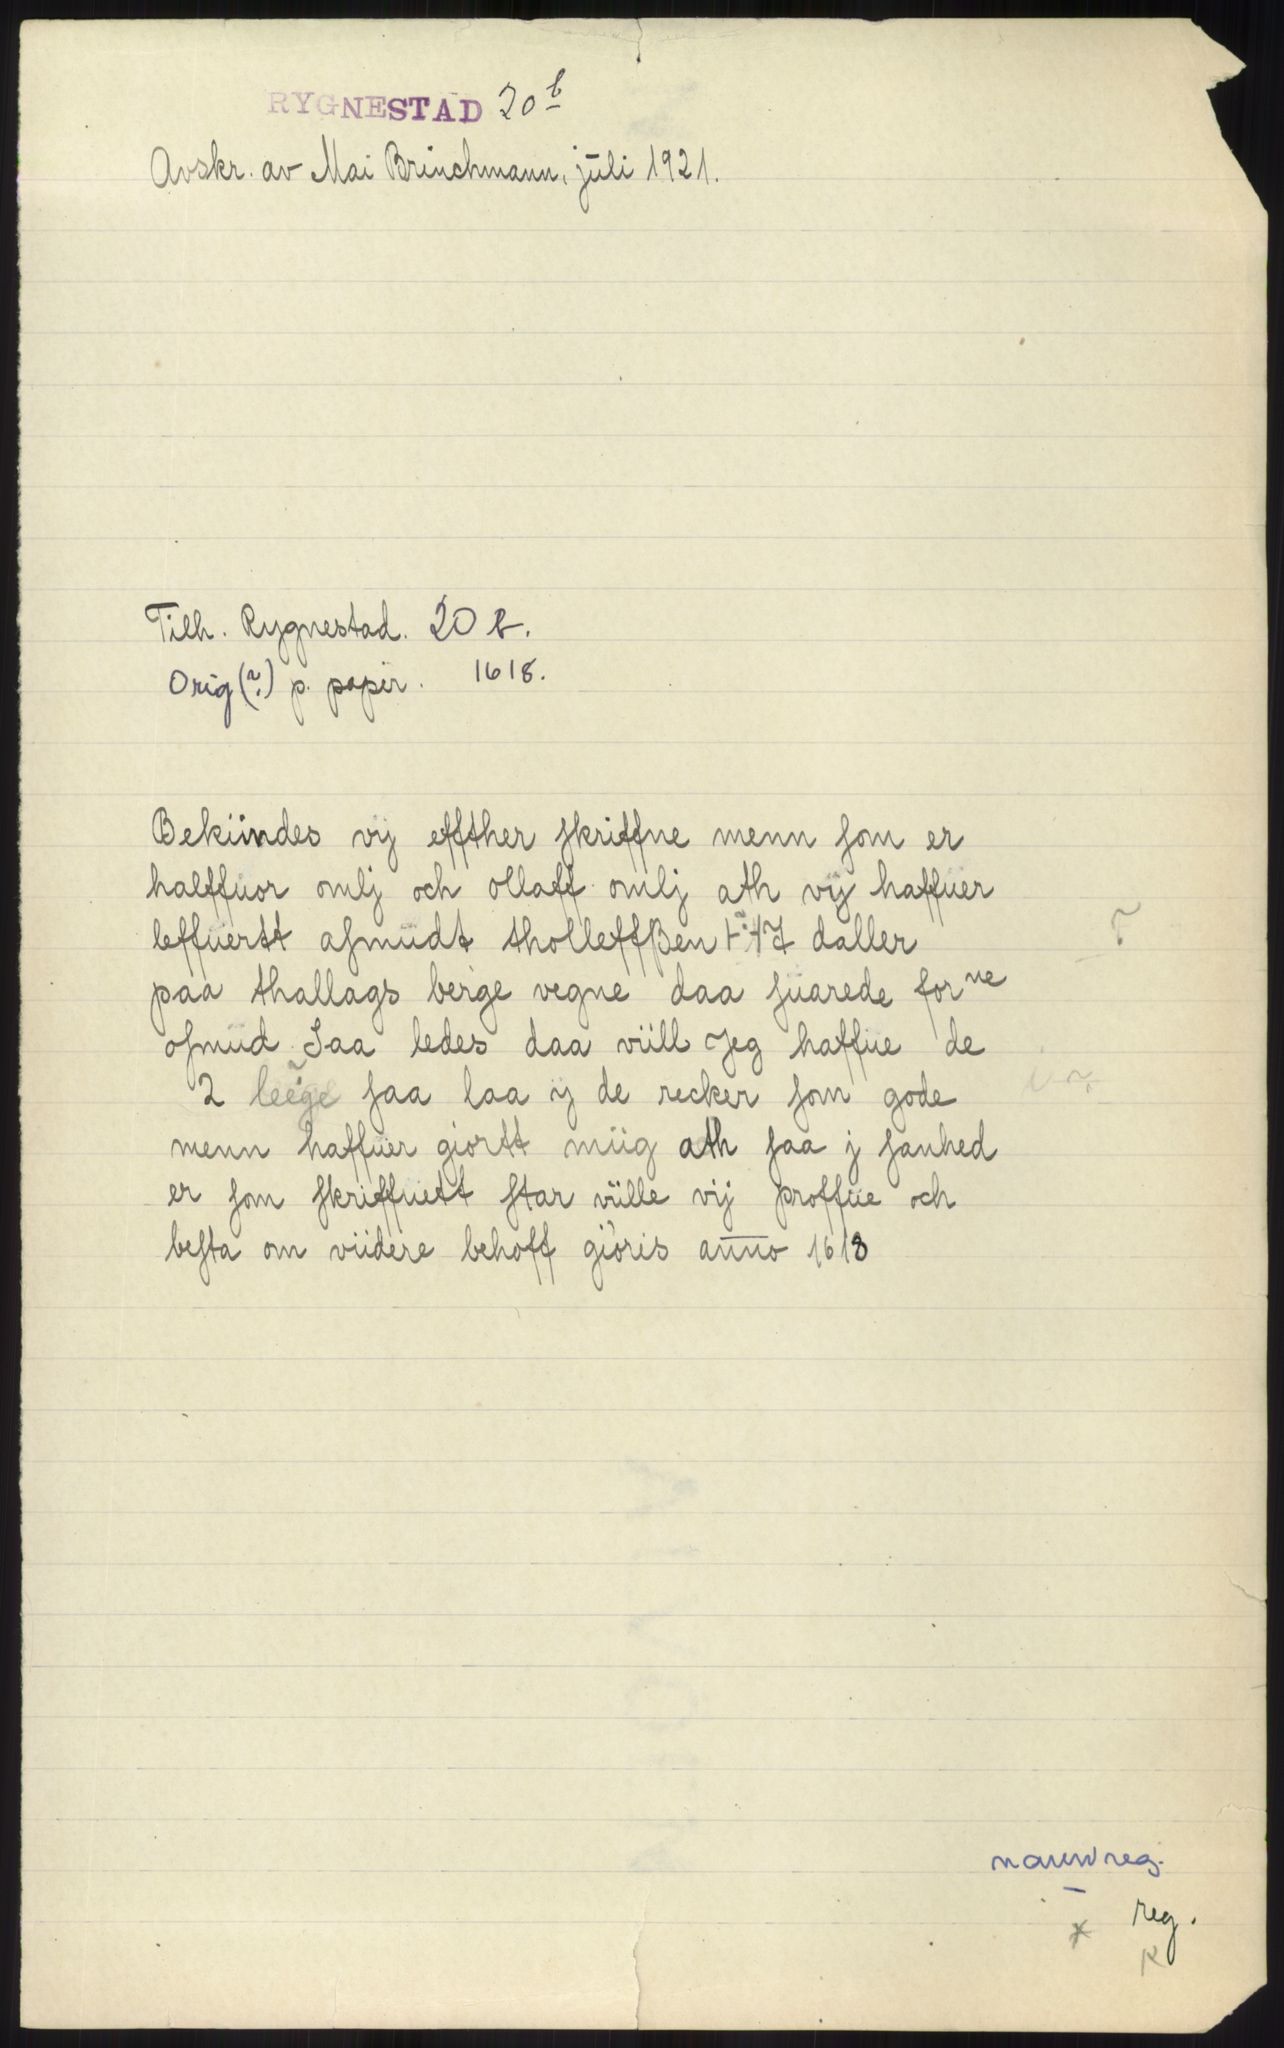 RYGNESTAD 20b
Avskr. av Mai Brinchmann, juli 1921.
Tilh. Rygnestad. 20 b.
Orig (?) p. papir. 1618.
Bekiindes vij effther ſkriffne menn ſom er
halffuor omlj och ollaff omlj ath vij haffuer
leffuertt aſmudt tholleffßen 17 daller
paa thallags berge vegne daa ſuarede forne
oſmud Saa ledes daa viill Jeg haffue de
2 leege ſaa laa ij de recker ſom gode
menn haffuer giortt miig ath ſaa j ſanhed
er ſom ſkriffuett ſtar ville vij proffue och
beſta om viidere behoff giöris anno 1618
?
navnreg.
reg.
x
K